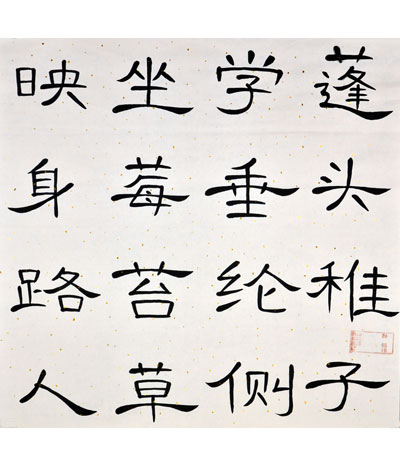 蓬头稚子
学垂纶侧
坐莓苔草
映身路人